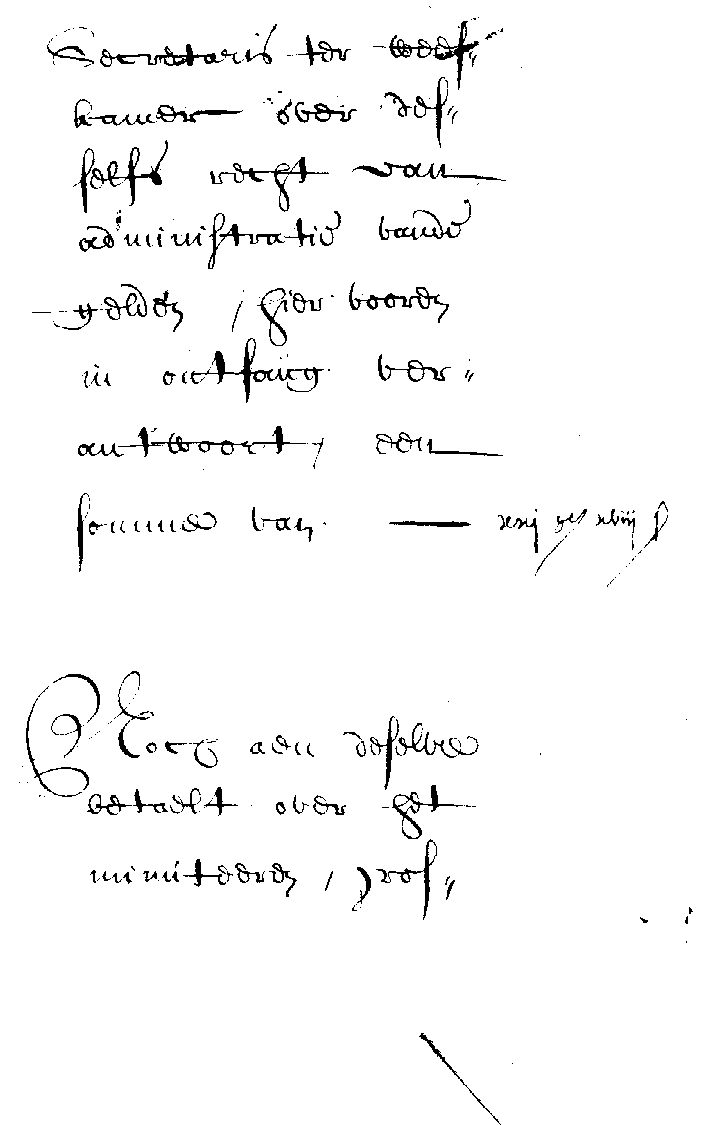 Secretaris ter wees„
kamer over des„
selfs recht van
administratie vande
gelden / hier vooren
in ontfang ver„
antwoort / een
somme van — xxxj gls xviij s
Noch aen deselve
betaelt over het
minuteeren / gros„